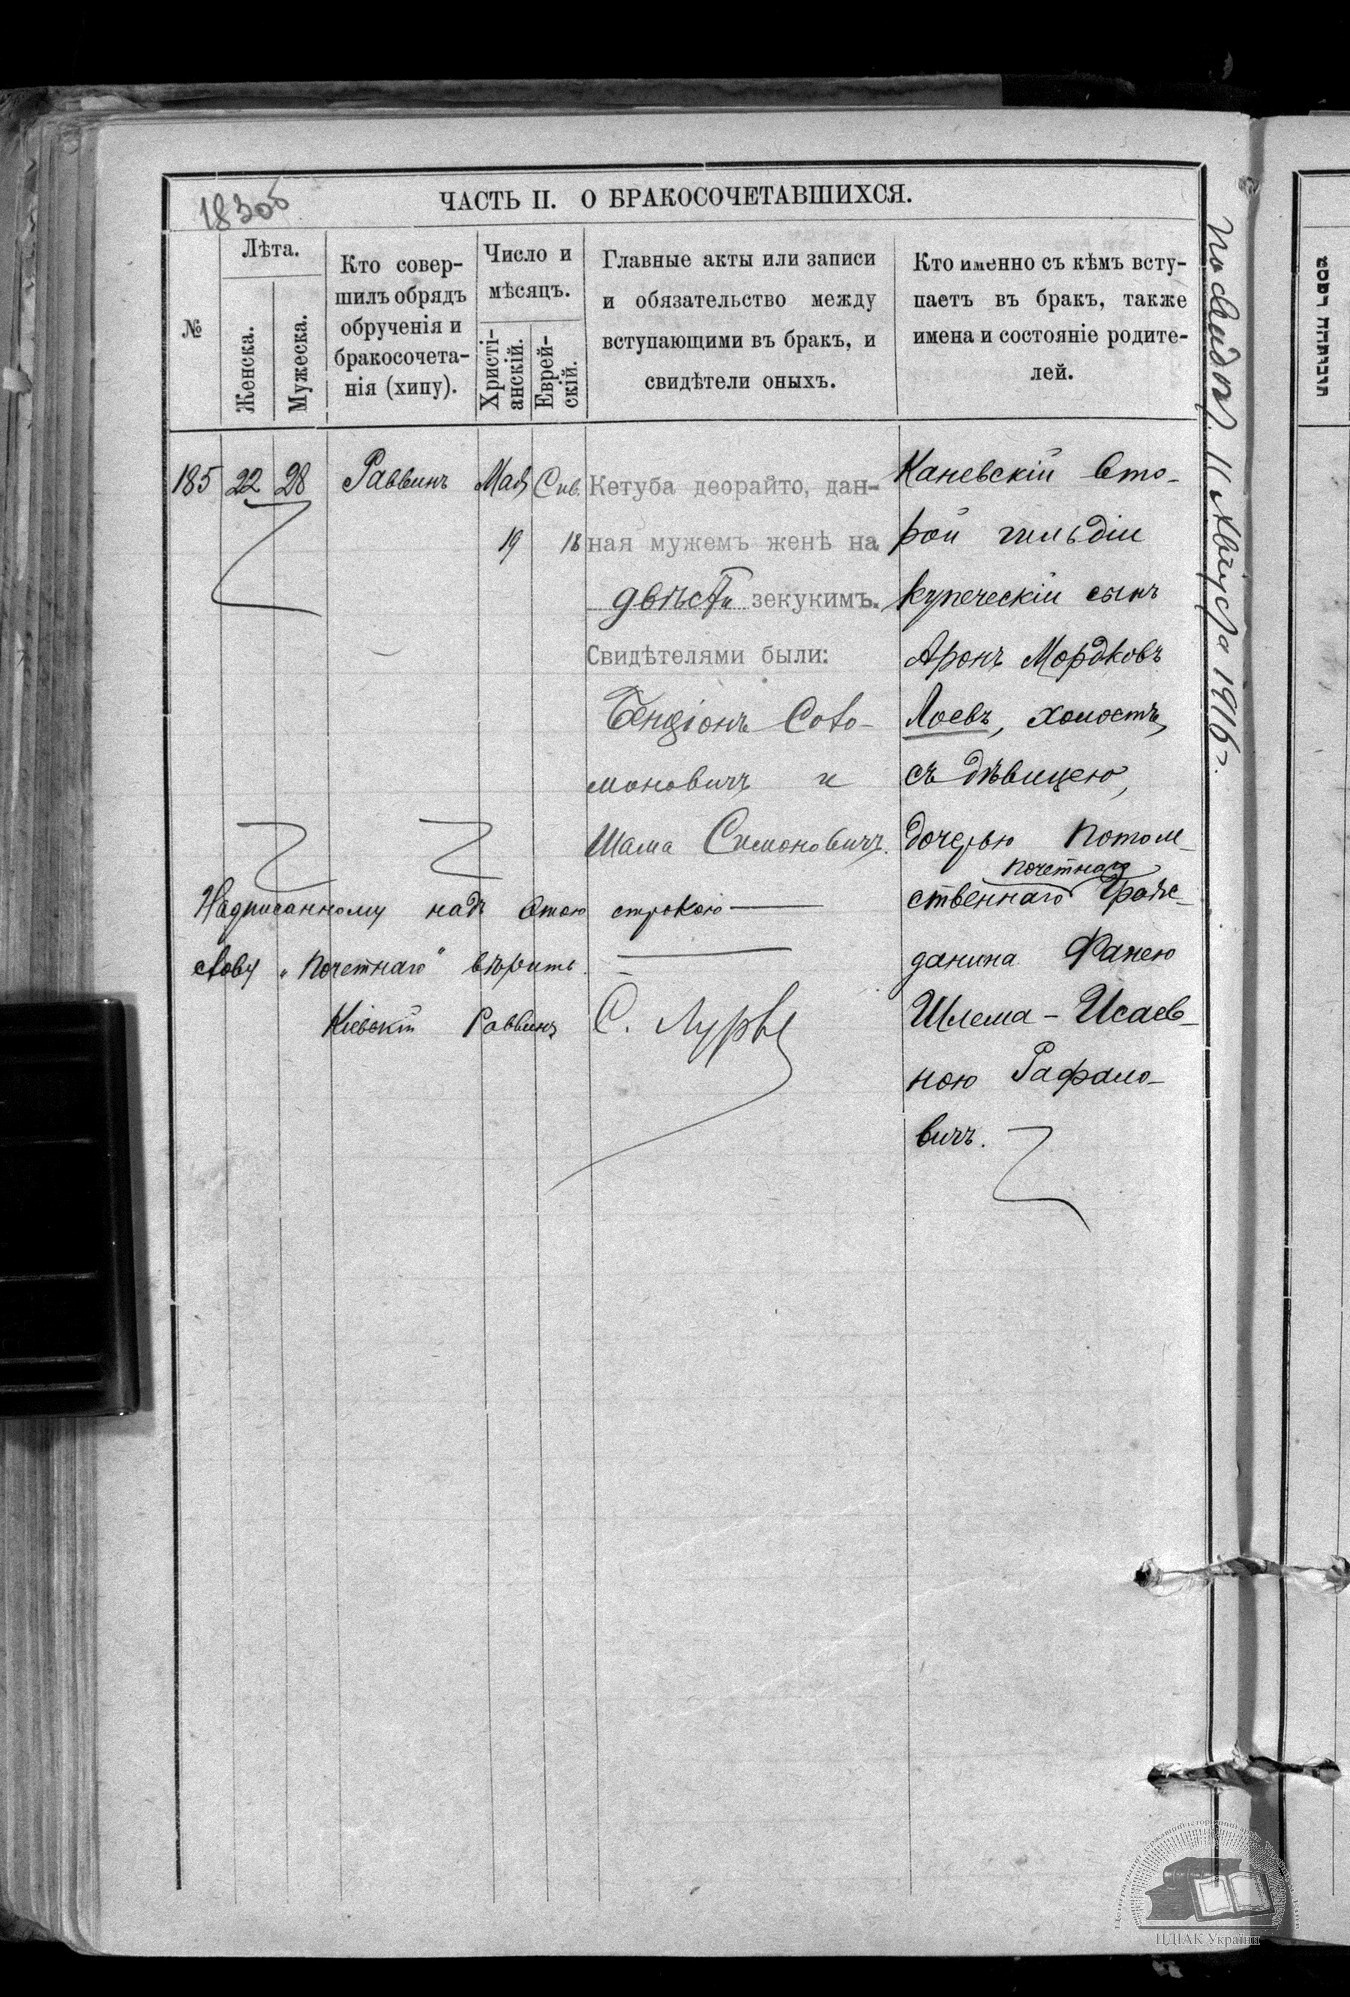 183об
ЧАСТЬ II. О БРАКОСОЧЕТАВШИХСЯ.
№
Лѣта.
Женска.
Мужеска.
Кто совер-
шилъ обрядъ
обрученія и
бракосочета-
нія (хипу).
Число и
мѣсяцъ.
Христі-
анскій.
Еврей-
скій.
Главные акты или записи
и обязательство между
вступающими въ бракъ, и
свидѣтели оныхъ.
Кто именно съ кѣмъ всту-
паетъ въ бракъ, также
имена и состояніе родите-
лей.
185 22 28 Раввинъ Мая Сив.
19 18
Кетуба деорайто, дан-
ная мужемъ женѣ на
двѣсти зекукимъ.
Свидѣтелями были:
Бенціонъ Соло-
моновичъ и
Шама Симоновичъ.
Каневскій вто-
рой гильдіи
купеческій сынъ
Аронъ Мордковъ
Лоевъ, холостъ,
съ дѣвицею,
дочерью потом-
почетнаго
ственнаго граж-
данина Фанею
Шлема-Исаев-
ною Рафало-
вичъ.
Надписанному надъ этою строкою
слову „почетнаго" вѣрить.
Кіевскій Раввинъ С. Лурье
11 Августа 1916 г.
ЦДІАК України